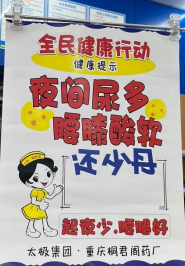 全民健康行动
健康提示
夜间尿多
腰膝酸软
还少丹
起夜少.腰膝好
太极集团·重庆桐君阁药厂